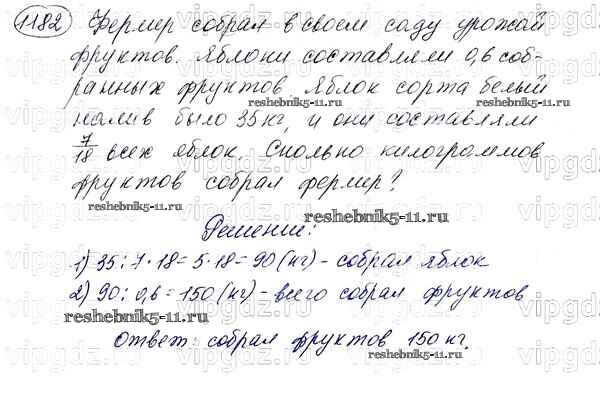 1182 Фермер собрал в своем саду урожай
фруктов. Яблони составляли 0,6 соб-
ранных фруктов. Яблок сорта белый
reshebnik5-11.ru
налив было 35 кг, и они составляли
7/18 всех яблок. Сколько килограммов
фруктов собрал фермер?
reshebnik5-11.ru
reshebnik5-11.ru
Решение:
1) 35 : 7 · 18 = 5 · 18 = 90 (кг) - собрал яблок
2) 90 : 0,6 = 150 (кг) - всего собрал фруктов
reshebnik5-11.ru
Ответ: собрал фруктов 150 кг.
reshebnik5-11.ru
vipgdz.ru